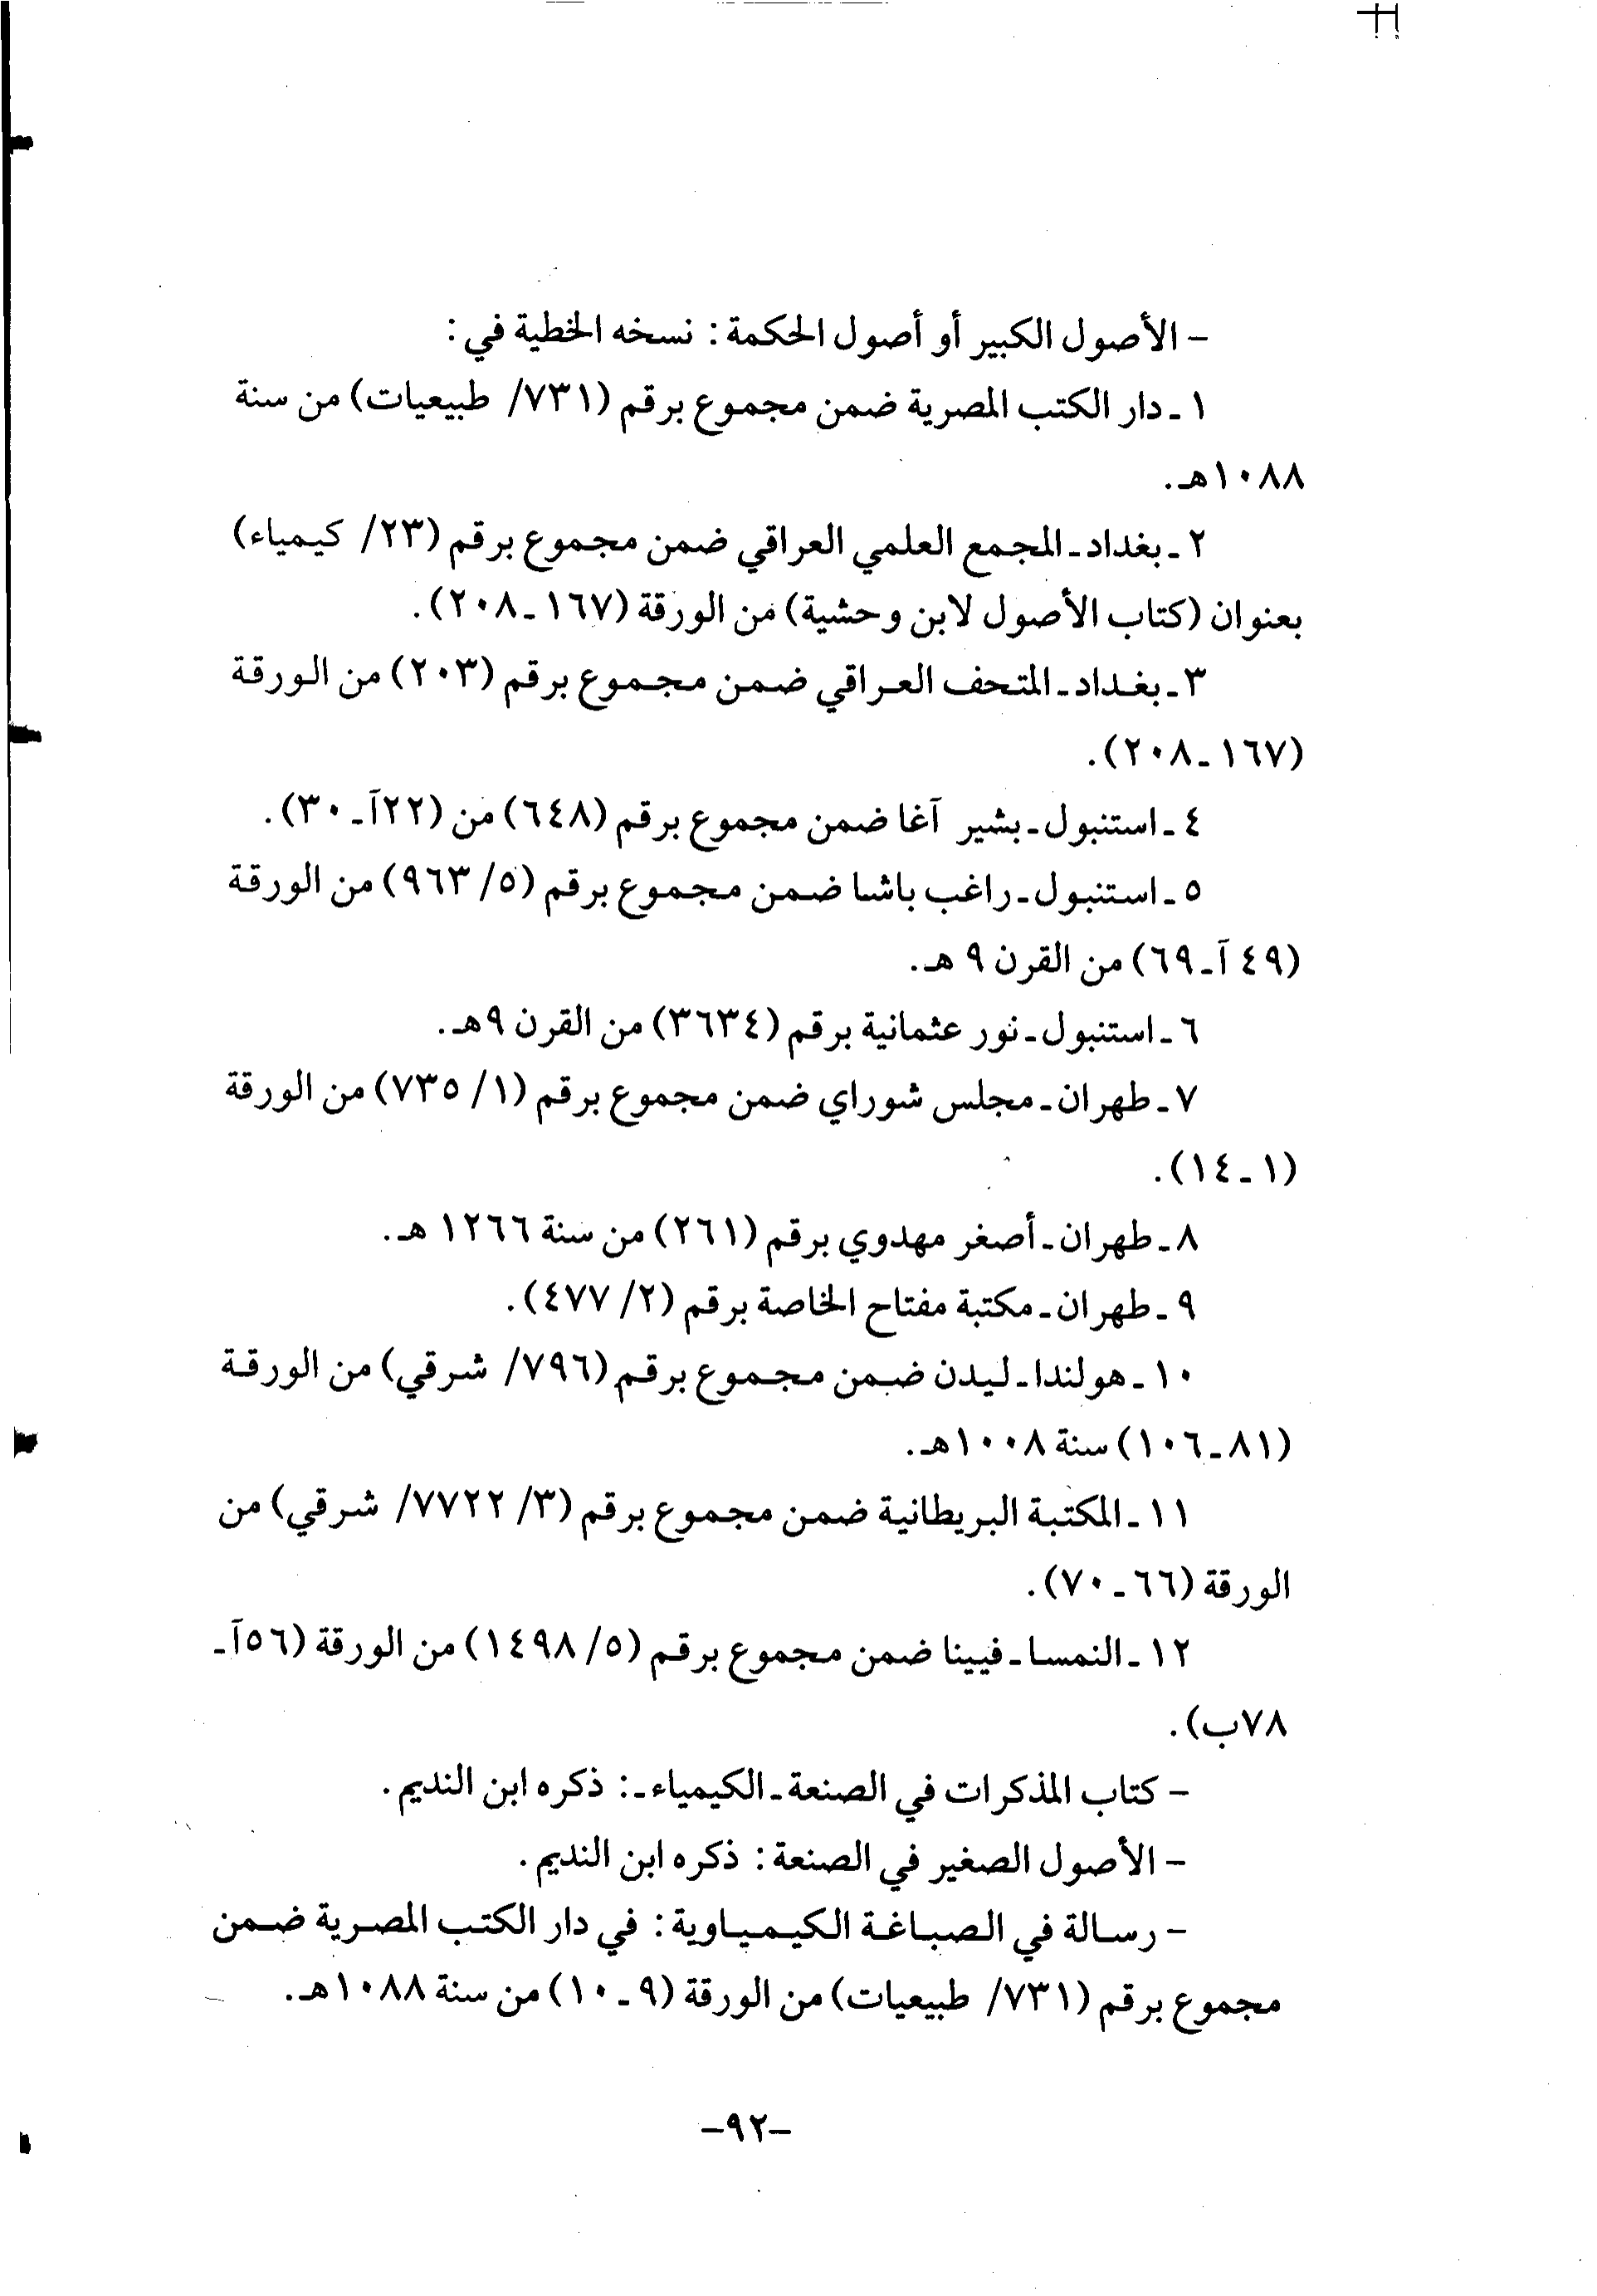 – الأصول الكبير أو أصول الحكمة: نسخه الخطية في:
١ ـ دار الكتب المصرية ضمن مجموع برقم (٧٣١/ طبيعيات) من سنة
١٠٨٨هـ.
٢ ـ بغداد ـ المجمع العلمي العراقي ضمن مجموع برقم (٢٣/ كيمياء)
بعنوان (كتاب الأصول لابن وحشية) من الورقة (١٦٧ ـ ٢٠٨).
٣ ـ بغداد ـ المتحف العراقي ضمن مجموع برقم (٢٠٣) من الورقة
(١٦٧ ـ ٢٠٨).
٤ ـ استنبول ـ بشير آغا ضمن مجموع برقم (٦٤٨) من (٢٢آ ـ ٣٠).
٥ ـ استنبول ـ راغب باشا ضمن مجموع برقم (٥/ ٩٦٣) من الورقة
(٤٩ آ ـ ٦٩) من القرن ٩ هـ.
٦ ـ استنبول ـ نور عثمانية برقم (٣٦٣٤) من القرن ٩هـ.
٧ ـ طهران ـ مجلس شوراي ضمن مجموع برقم (١/ ٧٣٥) من الورقة
(١ ـ ١٤).
٨ ـ طهران ـ أصغر مهدوي برقم (٢٦١) من سنة ١٢٦٦ هـ.
٩ ـ طهران ـ مكتبة مفتاح الخاصة برقم (٢/ ٤٧٧).
١٠ ـ هولندا ـ ليدن ضمن مجموع برقم (٧٩٦/ شرقي) من الورقة
(٨١ ـ ١٠٦) سنة ١٠٠٨هـ.
١١ ـ المكتبة البريطانية ضمن مجموع برقم (٣/ ٧٧٢٢/ شرقي) من
الورقة (٦٦ ـ ٧٠).
١٢ ـ النمسا ـ فيينا ضمن مجموع برقم (٥/ ١٤٩٨) من الورقة (٥٦آ ـ
٧٨ب).
– كتاب المذكرات في الصنعة ـ الكيمياء ـ: ذكره ابن النديم.
– الأصول الصغير في الصنعة: ذكره ابن النديم.
– رسالة في الصباغة الكيمياوية: في دار الكتب المصرية ضمن
مجموع برقم (٧٣١/ طبيعيات) من الورقة (٩ ـ ١٠) من سنة ١٠٨٨هـ.
–٩٢–